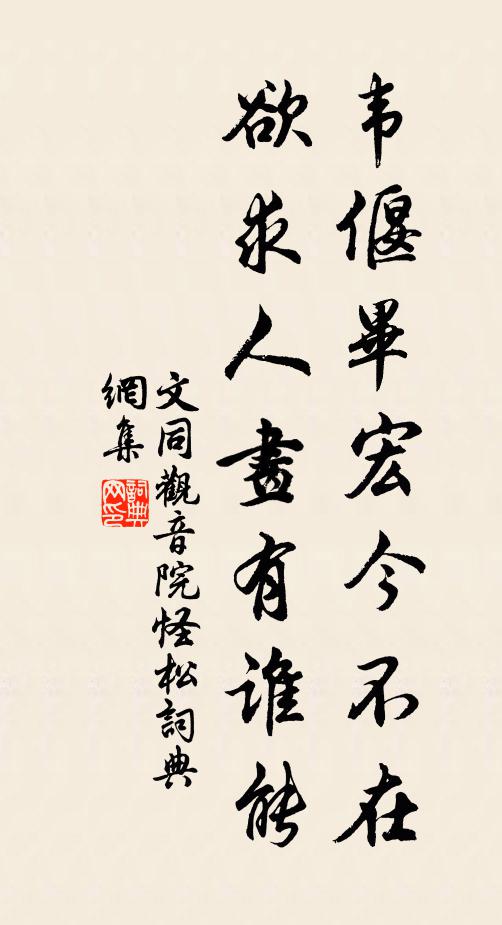 韦偃畢宏今不在
欲求人畫有谁能
文同觀音院怪松詞典
網集
詞典
网印